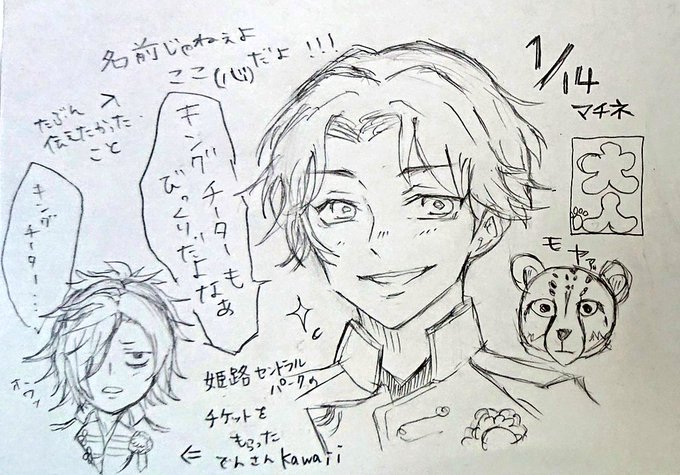 名前じゃねぇよ
ここ(心)だよ!!!
たぶん
伝えたかった
こと
キングチーターも
びっくりだよなぁ
キング
チーター…
1/14
マチネ
大入
モヤァ
姫路セントラル
パークの
チケットを
もらった
でんさんkawaii